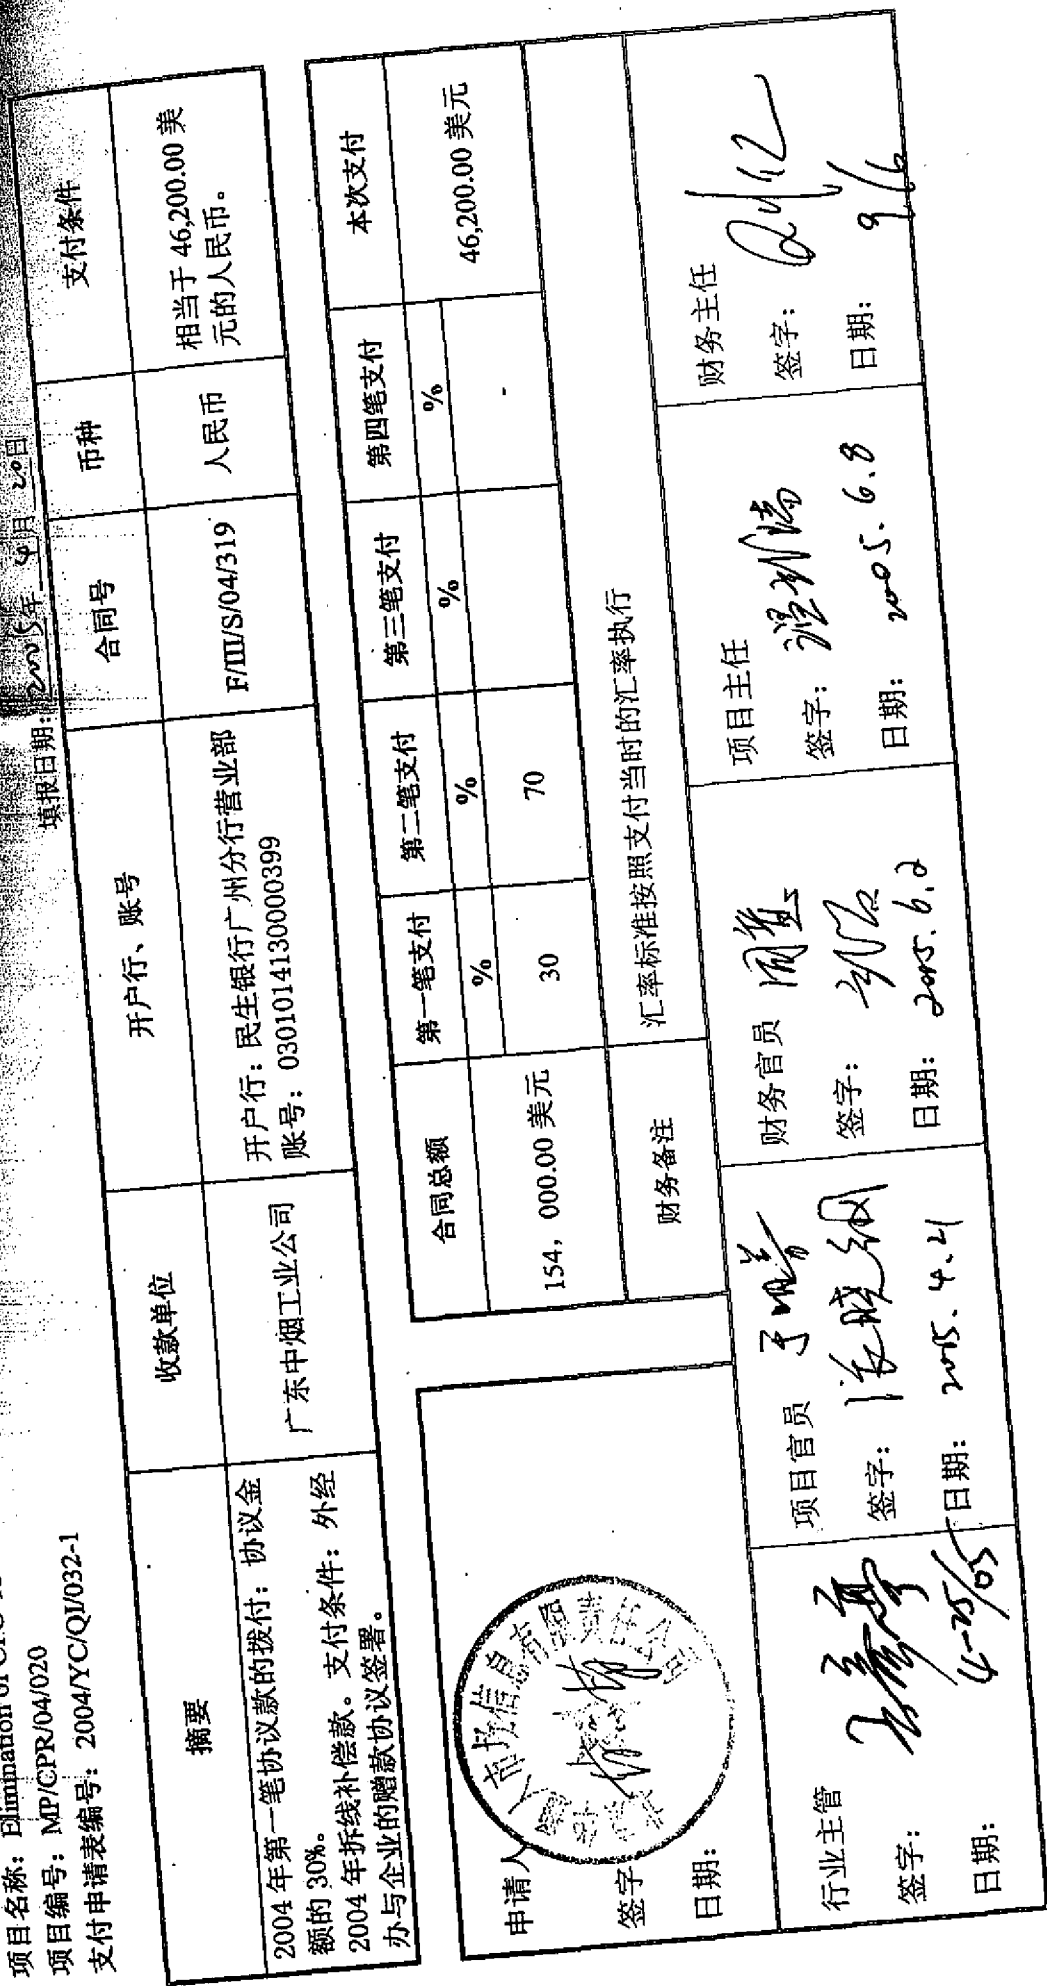 项目名称：Elimination of CFC-11
项目编号：MP/CPR/04/020
支付申请表编号：2004/YC/QI/032-1
填报日期：2005年 4月 20日
摘要
收款单位
开户行、账号
合同号
币种
支付条件
2004 年第一笔协议款的拨付：协议金
额的 30%。
2004 年拆线补偿款。支付条件：外经
办与企业的赠款协议签署。
广东中烟工业公司
开户行：民生银行广州分行营业部
账号：0301014130000399
F/III/S/04/319
人民币
相当于 46,200.00 美
元的人民币。
合同总额
第一笔支付
第二笔支付
第三笔支付
第四笔支付
本次支付
%
%
%
%
154，000.00 美元
30
70
-
46,200.00 美元
财务备注
汇率标准按照支付当时的汇率执行
申请人
签字
日期：
行业主管
签字：
日期：
4-25/05
项目官员
签字：
日期：2005.4.21
财务官员
签字：
日期：2005.6.2
项目主任
签字：
日期：2005.6.8
财务主任
签字：
日期：9/6